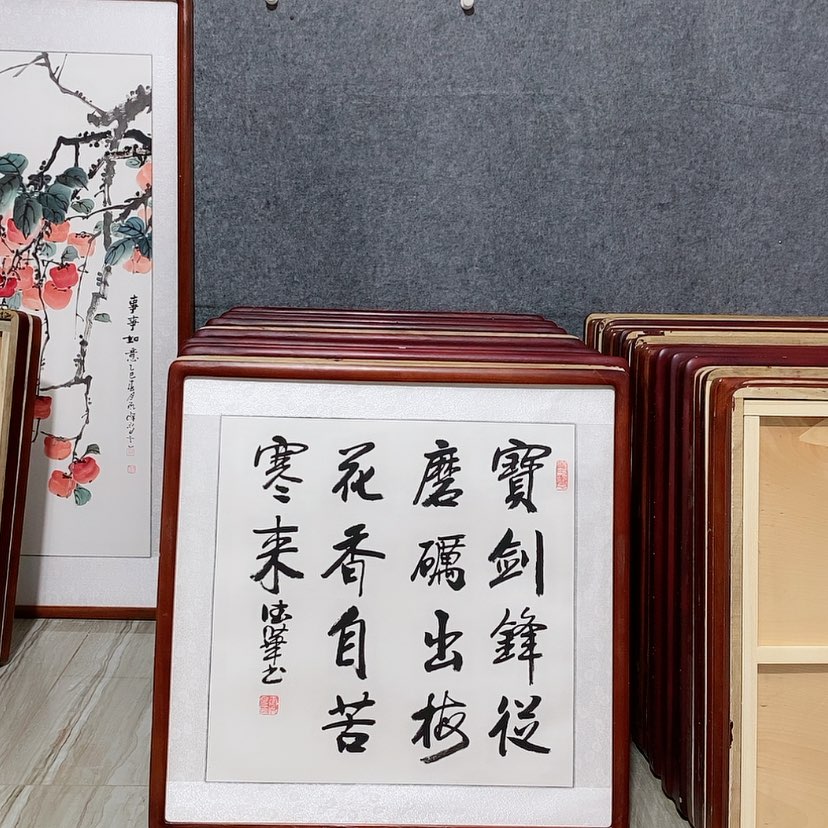 寶劍鋒從
磨礪出梅
花香自苦
寒来
德華书
事事如意